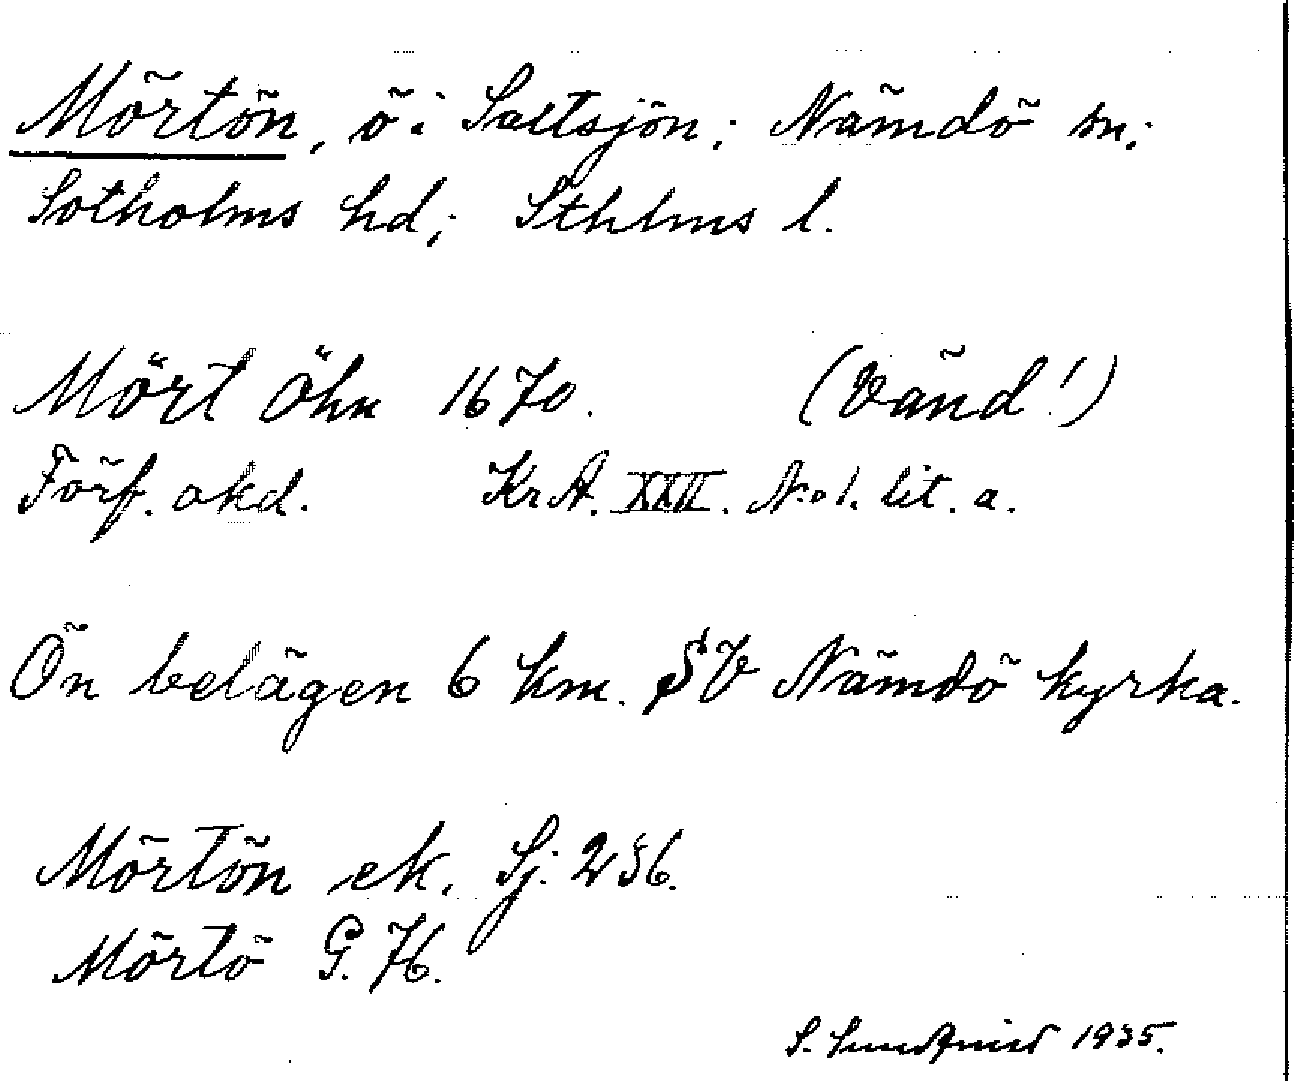 Mörtön, ö i Saltsjön; Nämdö sn;
Sotholms hd; Sthlms l.
Mört Öhn 1670. (Vänd!)
Förf. okd. Kr.A. XXII. N:o 1. lit. a.
Ön belägen 6 km. SV Nämdö kyrka.
Mörtön ek. Sj. 256.
Mörtö G. 76.
S. Lundqvist 1935.